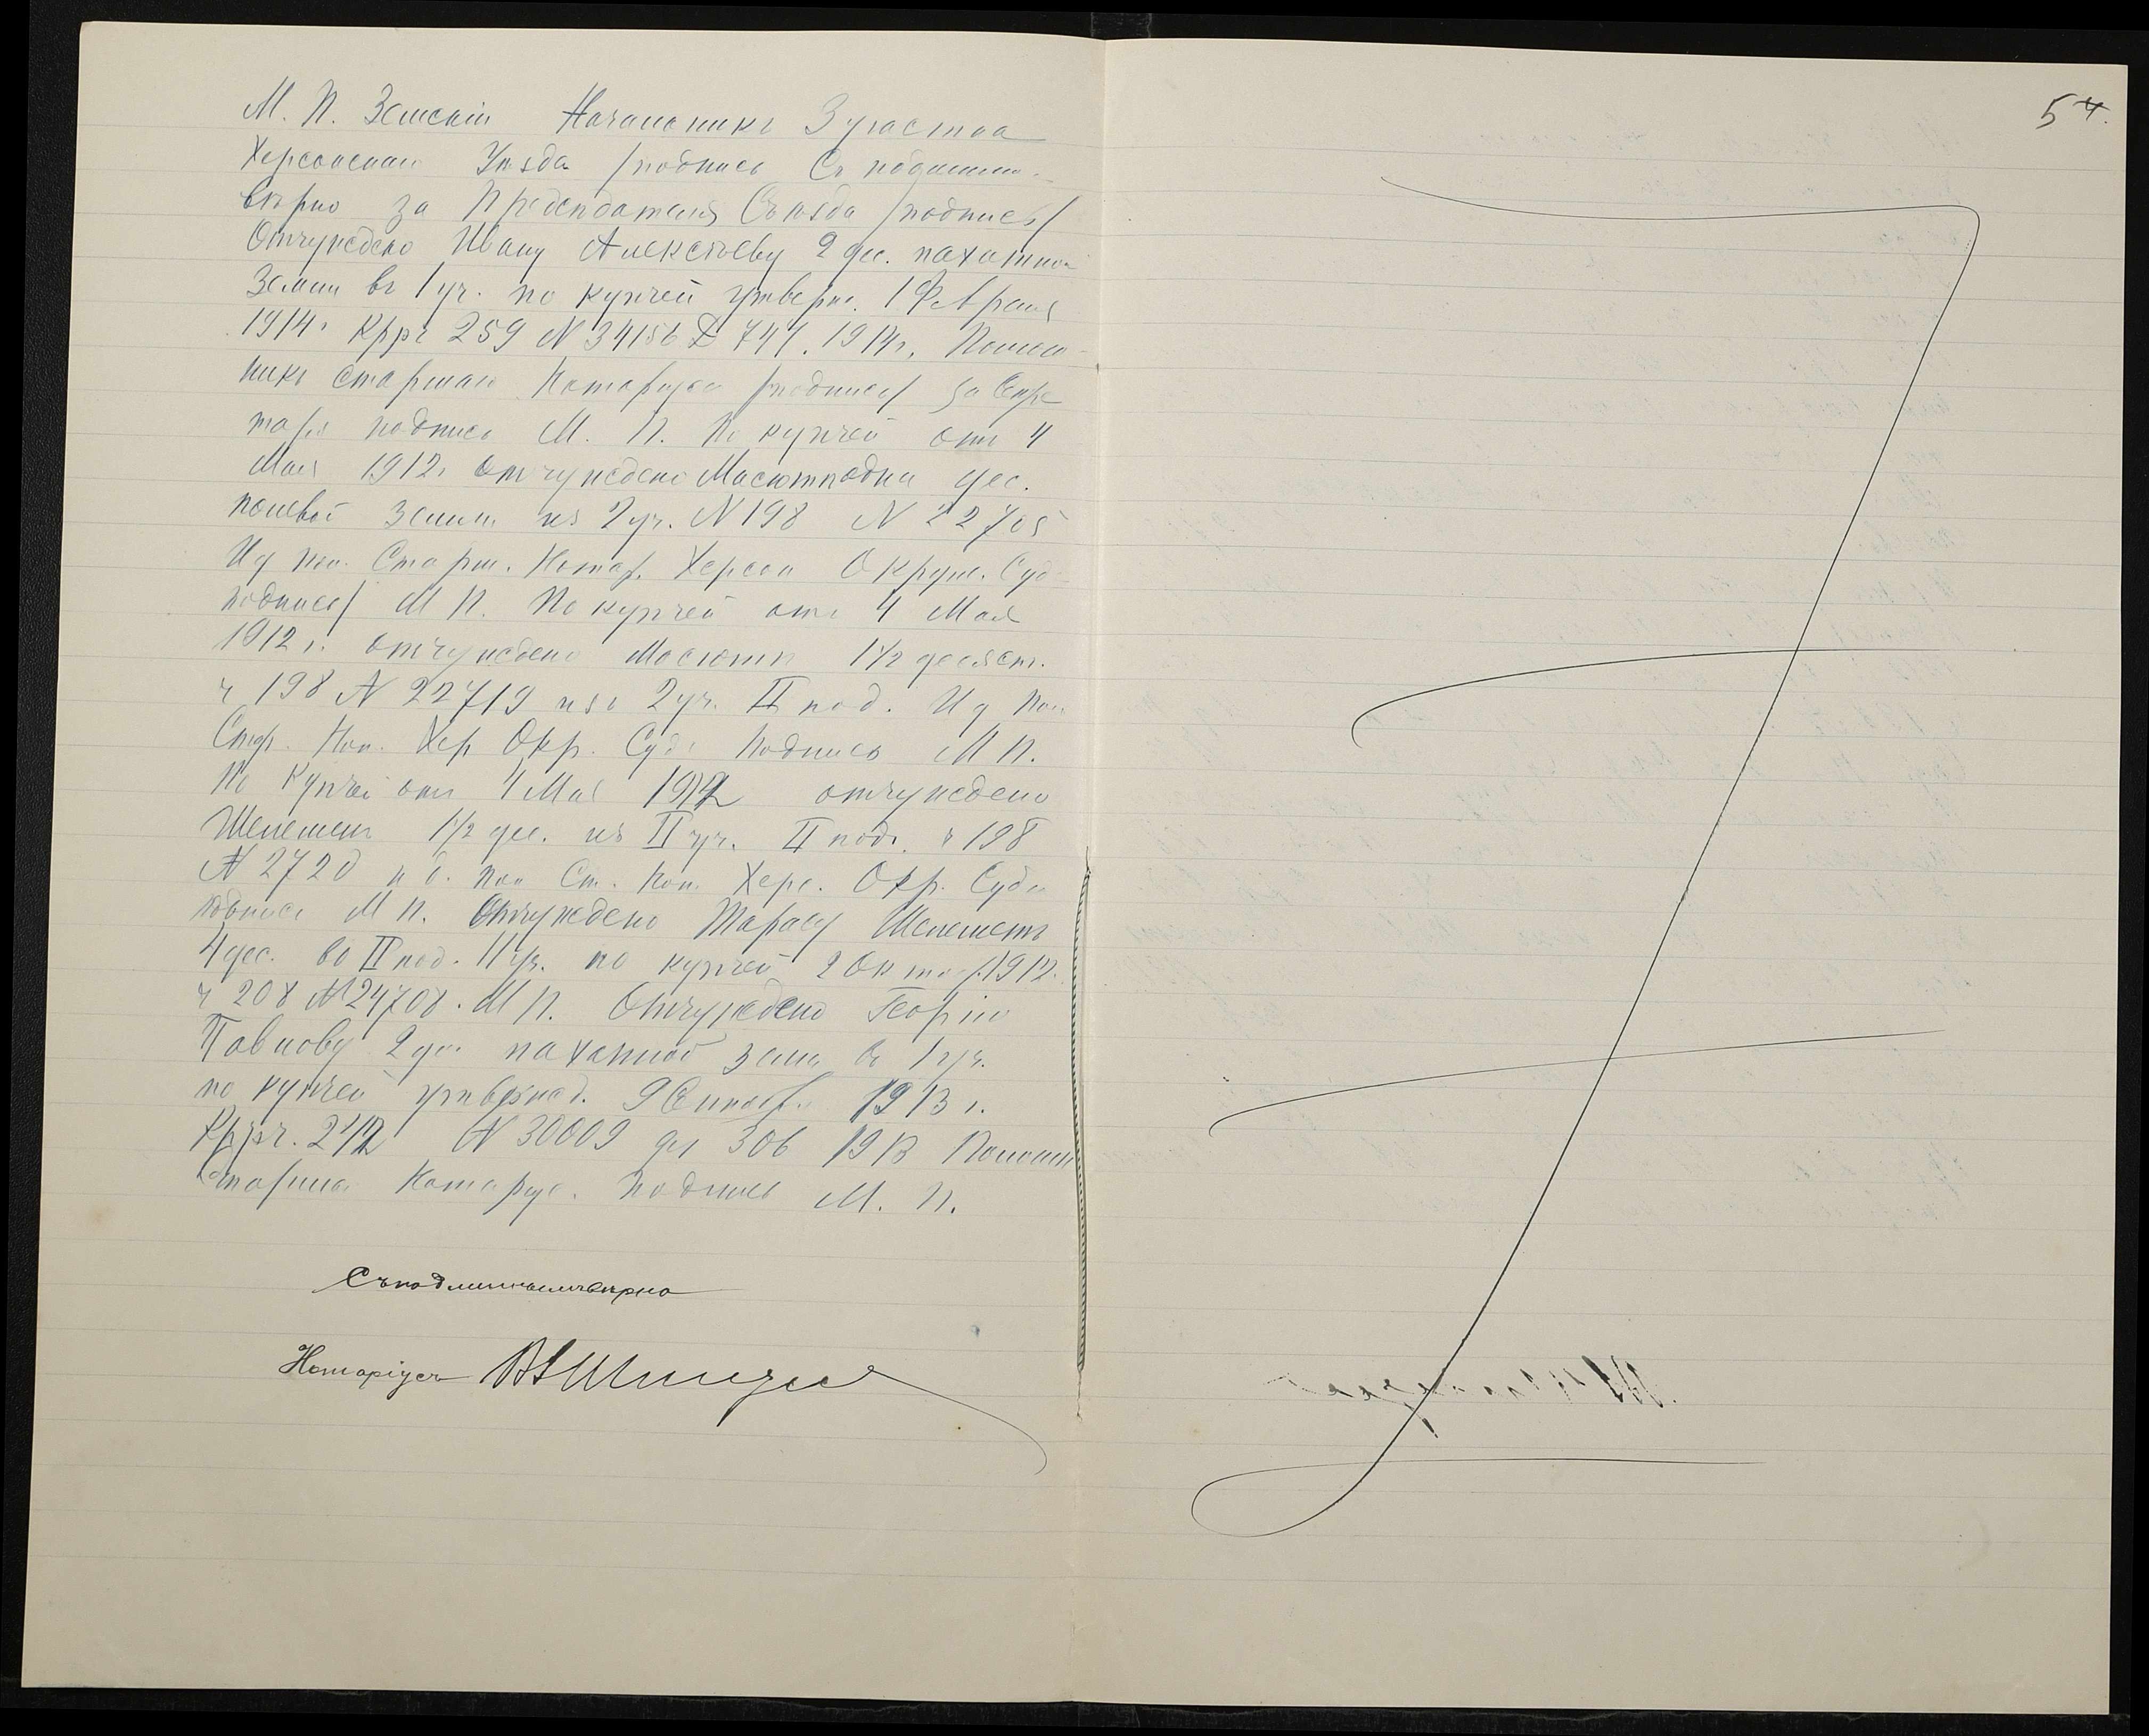 М. П. Земскій Начальникъ 3 участка
Херсонскаго Уѣзда /подпись Съ подлинн.
вѣрно за Предсѣдателя Съѣзда /подпись/
Отчуждено Ивану Алексѣеву 2 дес. пахатной
Земли въ 1 уч. по купчей утверж. 1 Февраля
1914 г. Кррг 259 № 34156 Д 741. 1914 г. Помощ-
никъ Старшаго Нотаріуса /подпись/ за Секре
таря подпись М. П. По купчей отъ 4
Мая 1912 г. отчуждено дес.
полевой земли изъ 2 уч. № 198 № 22705
Ид пом. Старш. Нотар. Херсон Окруж. Суд
подпись/ М П. По купчей отъ 4 Мая
1912 г. отчуждено Масютѣ 1 1/2 десят.
ч 198 № 22719 изъ 2 уч. II под. И д пом
Стар. Нот. Хер Окр. Суда Подпись М П.
По Купчей отъ 4 Мая 1912 отчуждено
Шелешетъ 1 1/2 дес. изъ II уч. II под. ч 198
№ 2720 и д. пом Ст. Нот. Херс. Окр. Суда
подпись М п. Отчуждено Тарасу Шелешетъ
4 дес. во II под. II уч. по купчей 2 Октяб. 1912.
ч 208 № 24708. М П. Отчуждено Георгію
Павлову 2 дес пахатной земли въ 1 уч.
по купчей утвержд. 9 1913 г.
Кррг. 242 № 30009 дел 306 1913 Помощн
Старша Нотаріус. Подпись М. П.
Съ подлиннымъ вѣрно
Нотаріусъ
54.